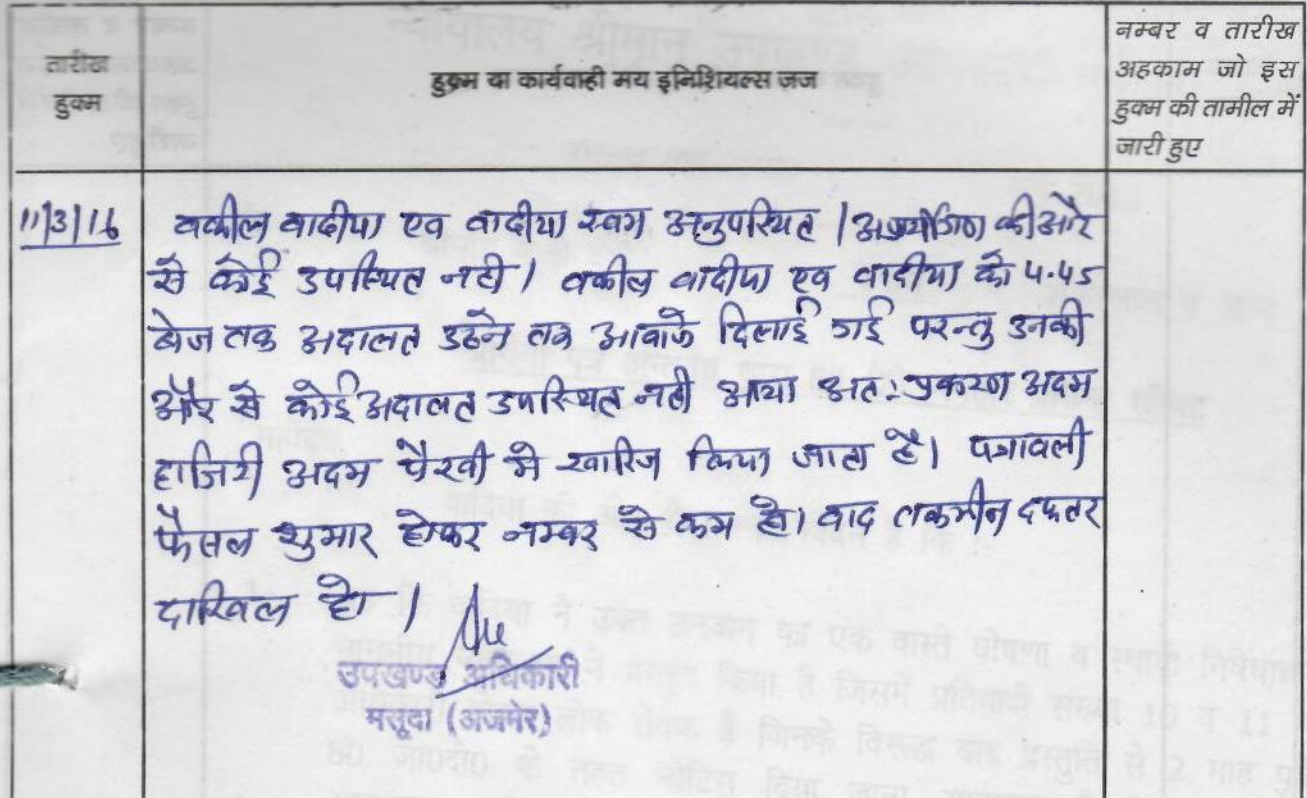 तारीख
हुक्म
हुक्म या कार्यवाही मय इनिशियल्स जज
नम्बर व तारीख
अहकाम जो इस
हुक्म की तामील में
जारी हुए
11/3/16
वकील वादीया एव वादीया स्वय अनुपस्थित । की और
से कोई उपस्थित नही । वकील वादीया एव वादीया को 4.45
बेज तक अदालत उठेन तक आवाजे दिलाई गई परन्तु उनकी
और से कोई अदालत उपस्थित नही आया अत: प्रकरण अदम
हाजिरी अदम पैरवी मे खारिज किया जाता है। पत्रावली
फैसल शुमार होकर नम्बर से कम हो। वाद तकमील दफ्तर
दाखिल हो ।
उपखण्ड अधिकारी
मसूदा (अजमेर)